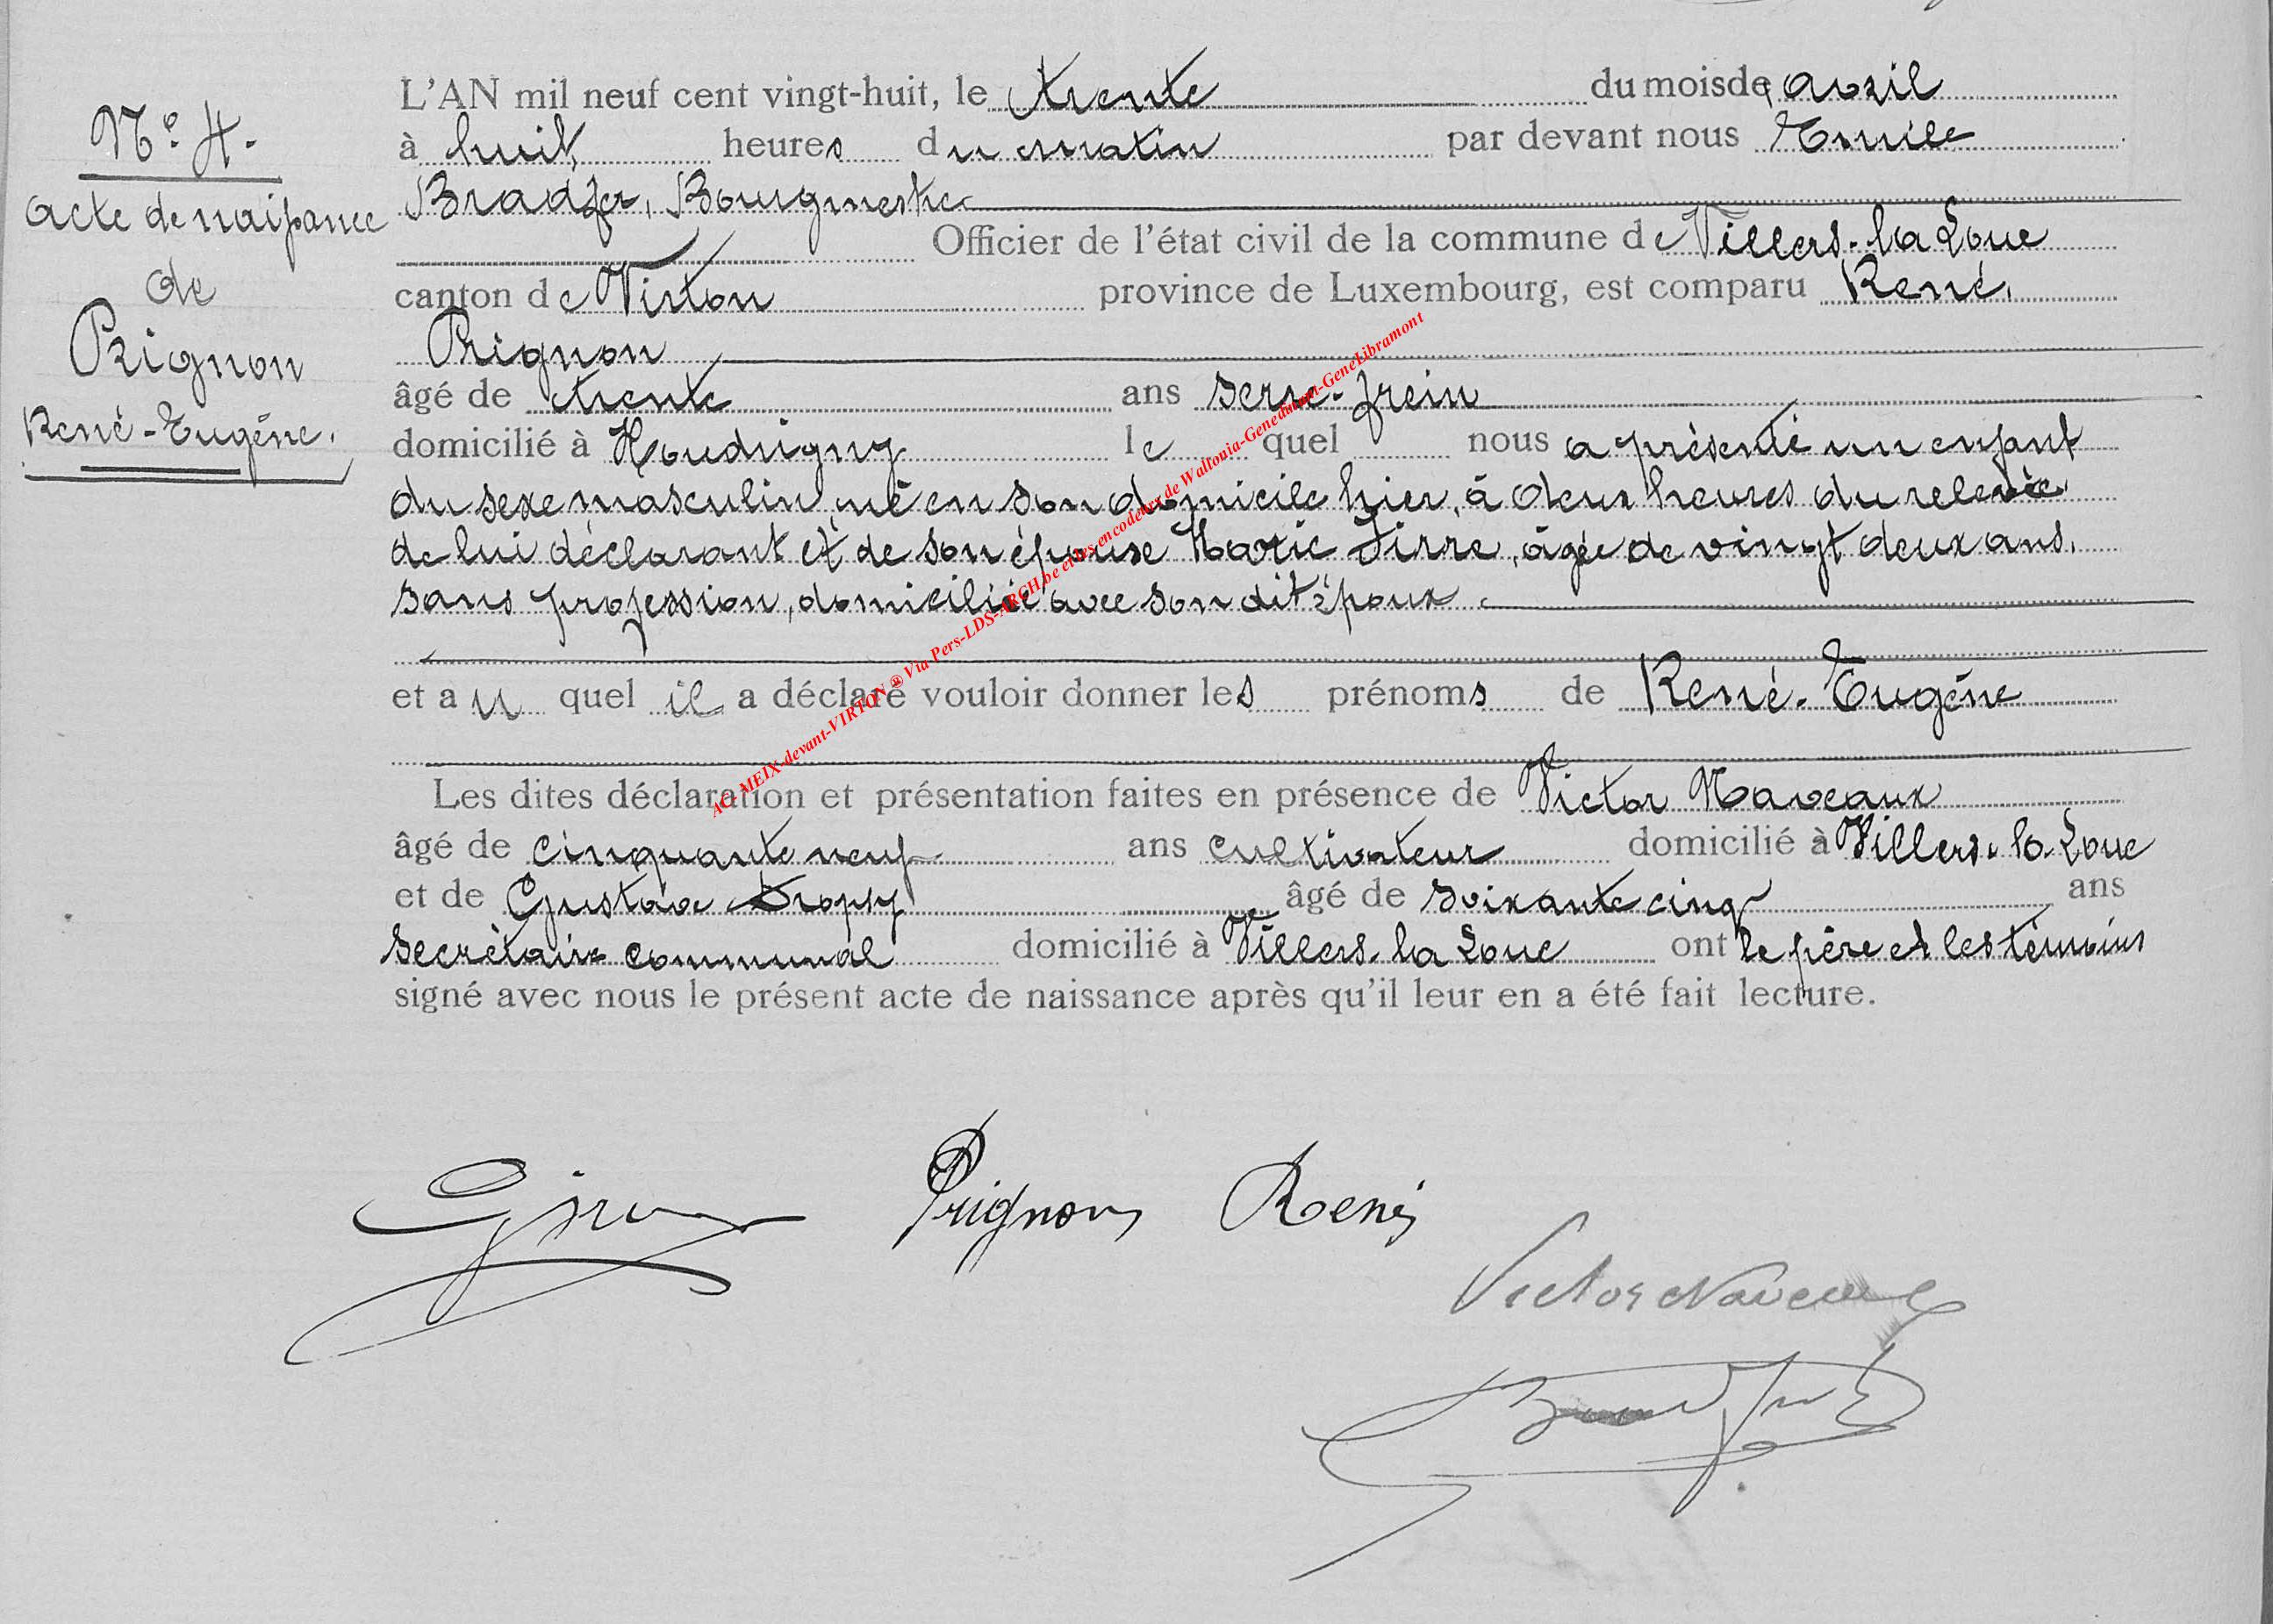 N° 4.
acte de naissance
de
Prignon
René-Eugène.
L'AN mil neuf cent vingt-huit, le trente du mois de avril
à huit heures du matin par devant nous Emile
Bradfer, Bourgmestre
Officier de l'état civil de la commune de Villers-la-Loue
canton de Virton province de Luxembourg, est comparu René,
Prignon
âgé de trente ans serre-frein
domicilié à Houdrigny lequel nous a présenté un enfant
du sexe masculin né en son domicile hier, à deux heures du relevée
de lui déclarant et de son épouse Marie, âgée de vingt deux ans,
sans profession, domiciliée avec son dit époux.
et au quel il a déclaré vouloir donner les prénoms de René-Eugène
Les dites déclaration et présentation faites en présence de Victor Naveaux
âgé de cinquante neuf ans cultivateur domicilié à Villers-la-Loue
et de Gustave Dropsy âgé de soixante cinq ans
secrétaire communal domicilié à Villers-la-Loue ont le père et les témoins
signé avec nous le présent acte de naissance après qu'il leur en a été fait lecture.
Prignon René
Victor Naveaux
AC- MEIX-devant-VIRTON ® Via Pers-LDS-ARGH.be et les encodeurs de Waltonia-Genedinant-GeneLibramont